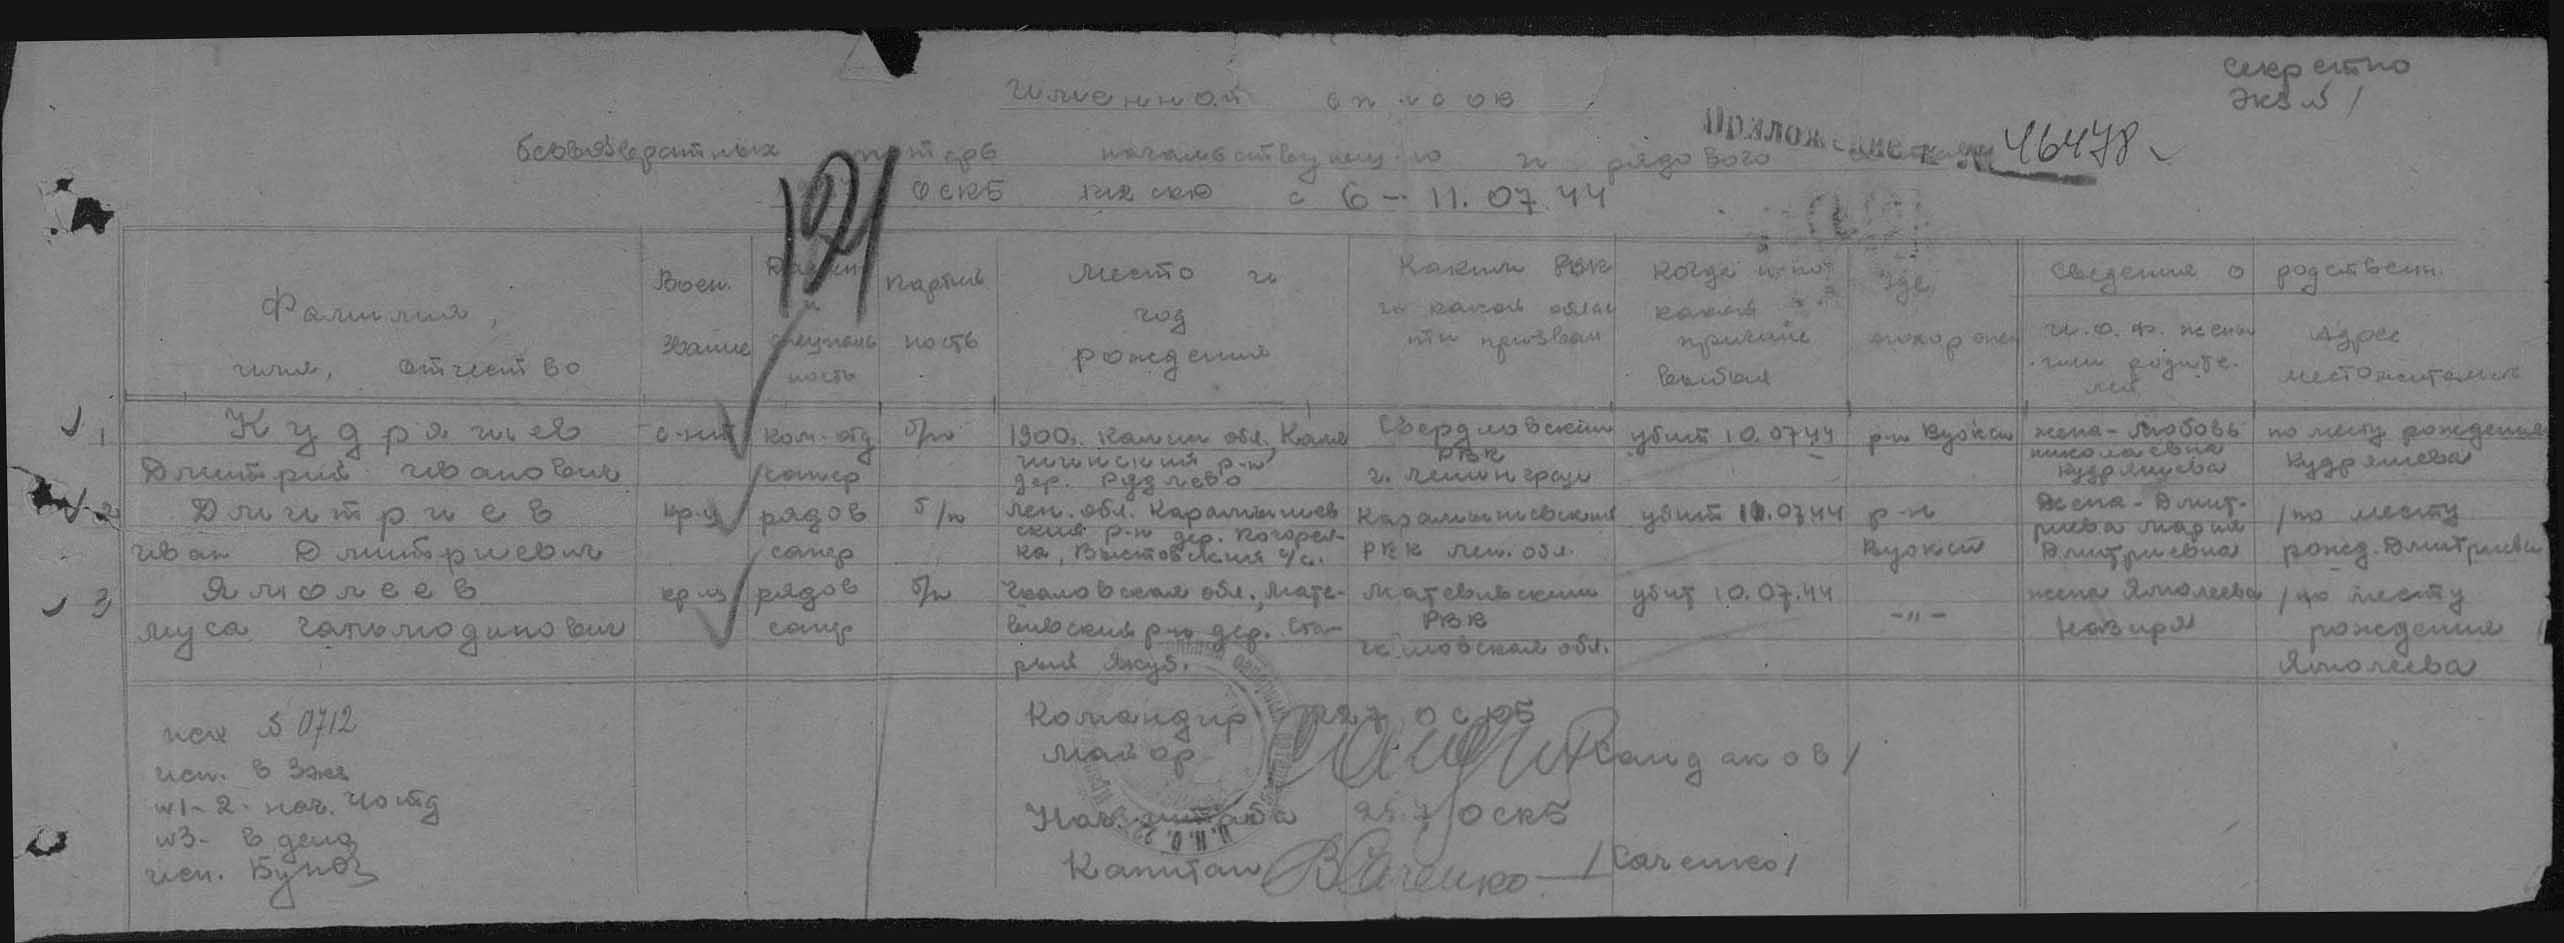 Секретно
Экз №1
Именной список
безвозвратных потерь начальствующ-го и рядового
Приложение к № 46478
ОСКБ с 6 – 11.07.44
Фамилия,
имя, отчество
Воен.
звание
и
специаль
ность
Партий
ность
Место и
год
рождения
Каким РВК
и какой облас
ти призван
Когда и по
какой
причине
выбыл
Где
похоронен
Сведения о родственн.
И.О.Ф. жены
или родите.
лей
Адрес
местожительст
1 Кудряшев
Дмитрий Иванович
с-нт
ком-отд
сапер
б/п
1900г. Калин обл.,
р-н
дер.
Свердловским
РВК
г. Ленинграда
убит 10.0744
р-н Вуокси
жена-Любовь
Николаевна
Кудряшева
по месту рождения
Кудряшева
2 Дмитриев
Иван Дмитриевич
кр-ц
рядов
сапер
б/п
Лен. обл. Карамышев
ский р-н дер.
с/с.
Карамышевский
РВК Лен. обл.
убит 10.0744
р-н
Вуокси
Жена-Дмит-
риева Мария
Дмитриевна
/по месту
рожд. Дмитриева
3 Ямолеев
Муса
кр-ц
рядов
сапер
б/п
Чкаловская обл., Мате-
вивский р-н дер. Ста-
рый Якуп.
Матвеевским
РВК
Чкаловской обл.
убит 10.07.44
-"-
жена Ямолеева
Назиря
/по месту
рождения
Ямолеева
исх № 0712
исп. в 3 экз
№1-2-
№3- в дело
исп.
Командир 257 ОСКБ
Майор /Кандаков/
Нач. штаба 257 ОСКБ
Капитан ВСаченко /Саченко/